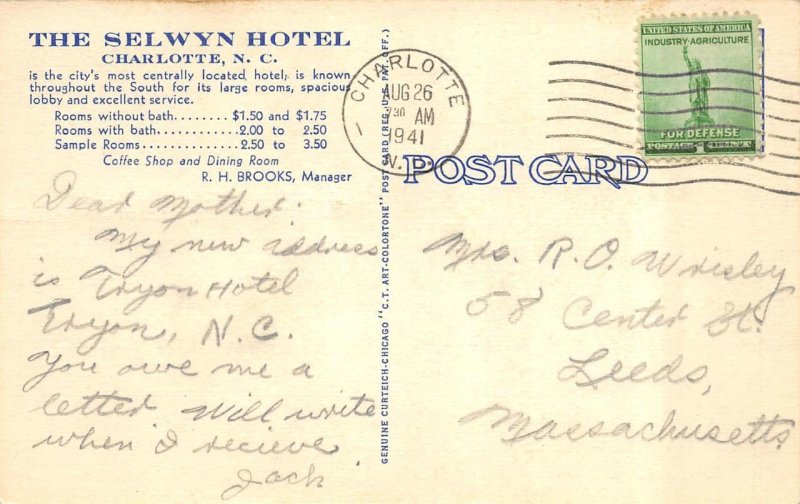 THE SELWYN HOTEL
CHARLOTTE, N. C.
is the city's most centrally located hotel, is known
throughout the South for its large rooms, spacious
lobby and excellent service.
Rooms without bath........$1.50 and $1.75
Rooms with bath...............2.00 to 2.50
Sample Rooms..................2.50 to 3.50
Coffee Shop and Dining Room
R. H. BROOKS, Manager
Dear Mother:
My new address
is Tryon Hotel
Tryon, N.C.
You owe me a
letter. Will write
when I recieve.
Jack
GENUINE CURTEICH-CHICAGO "C.T. ART-COLORTONE" POST CARD (REG. U.S. PAT. OFF.)
CHARLOTTE
AUG 26
730 AM
1941
N.C.
UNITED STATES OF AMERICA
INDUSTRY-AGRICULTURE
FOR DEFENSE
POSTAGE 1 CENT
POST CARD
Mrs. R. O. Wrisley
58 Center St.
Leeds,
Massachusetts